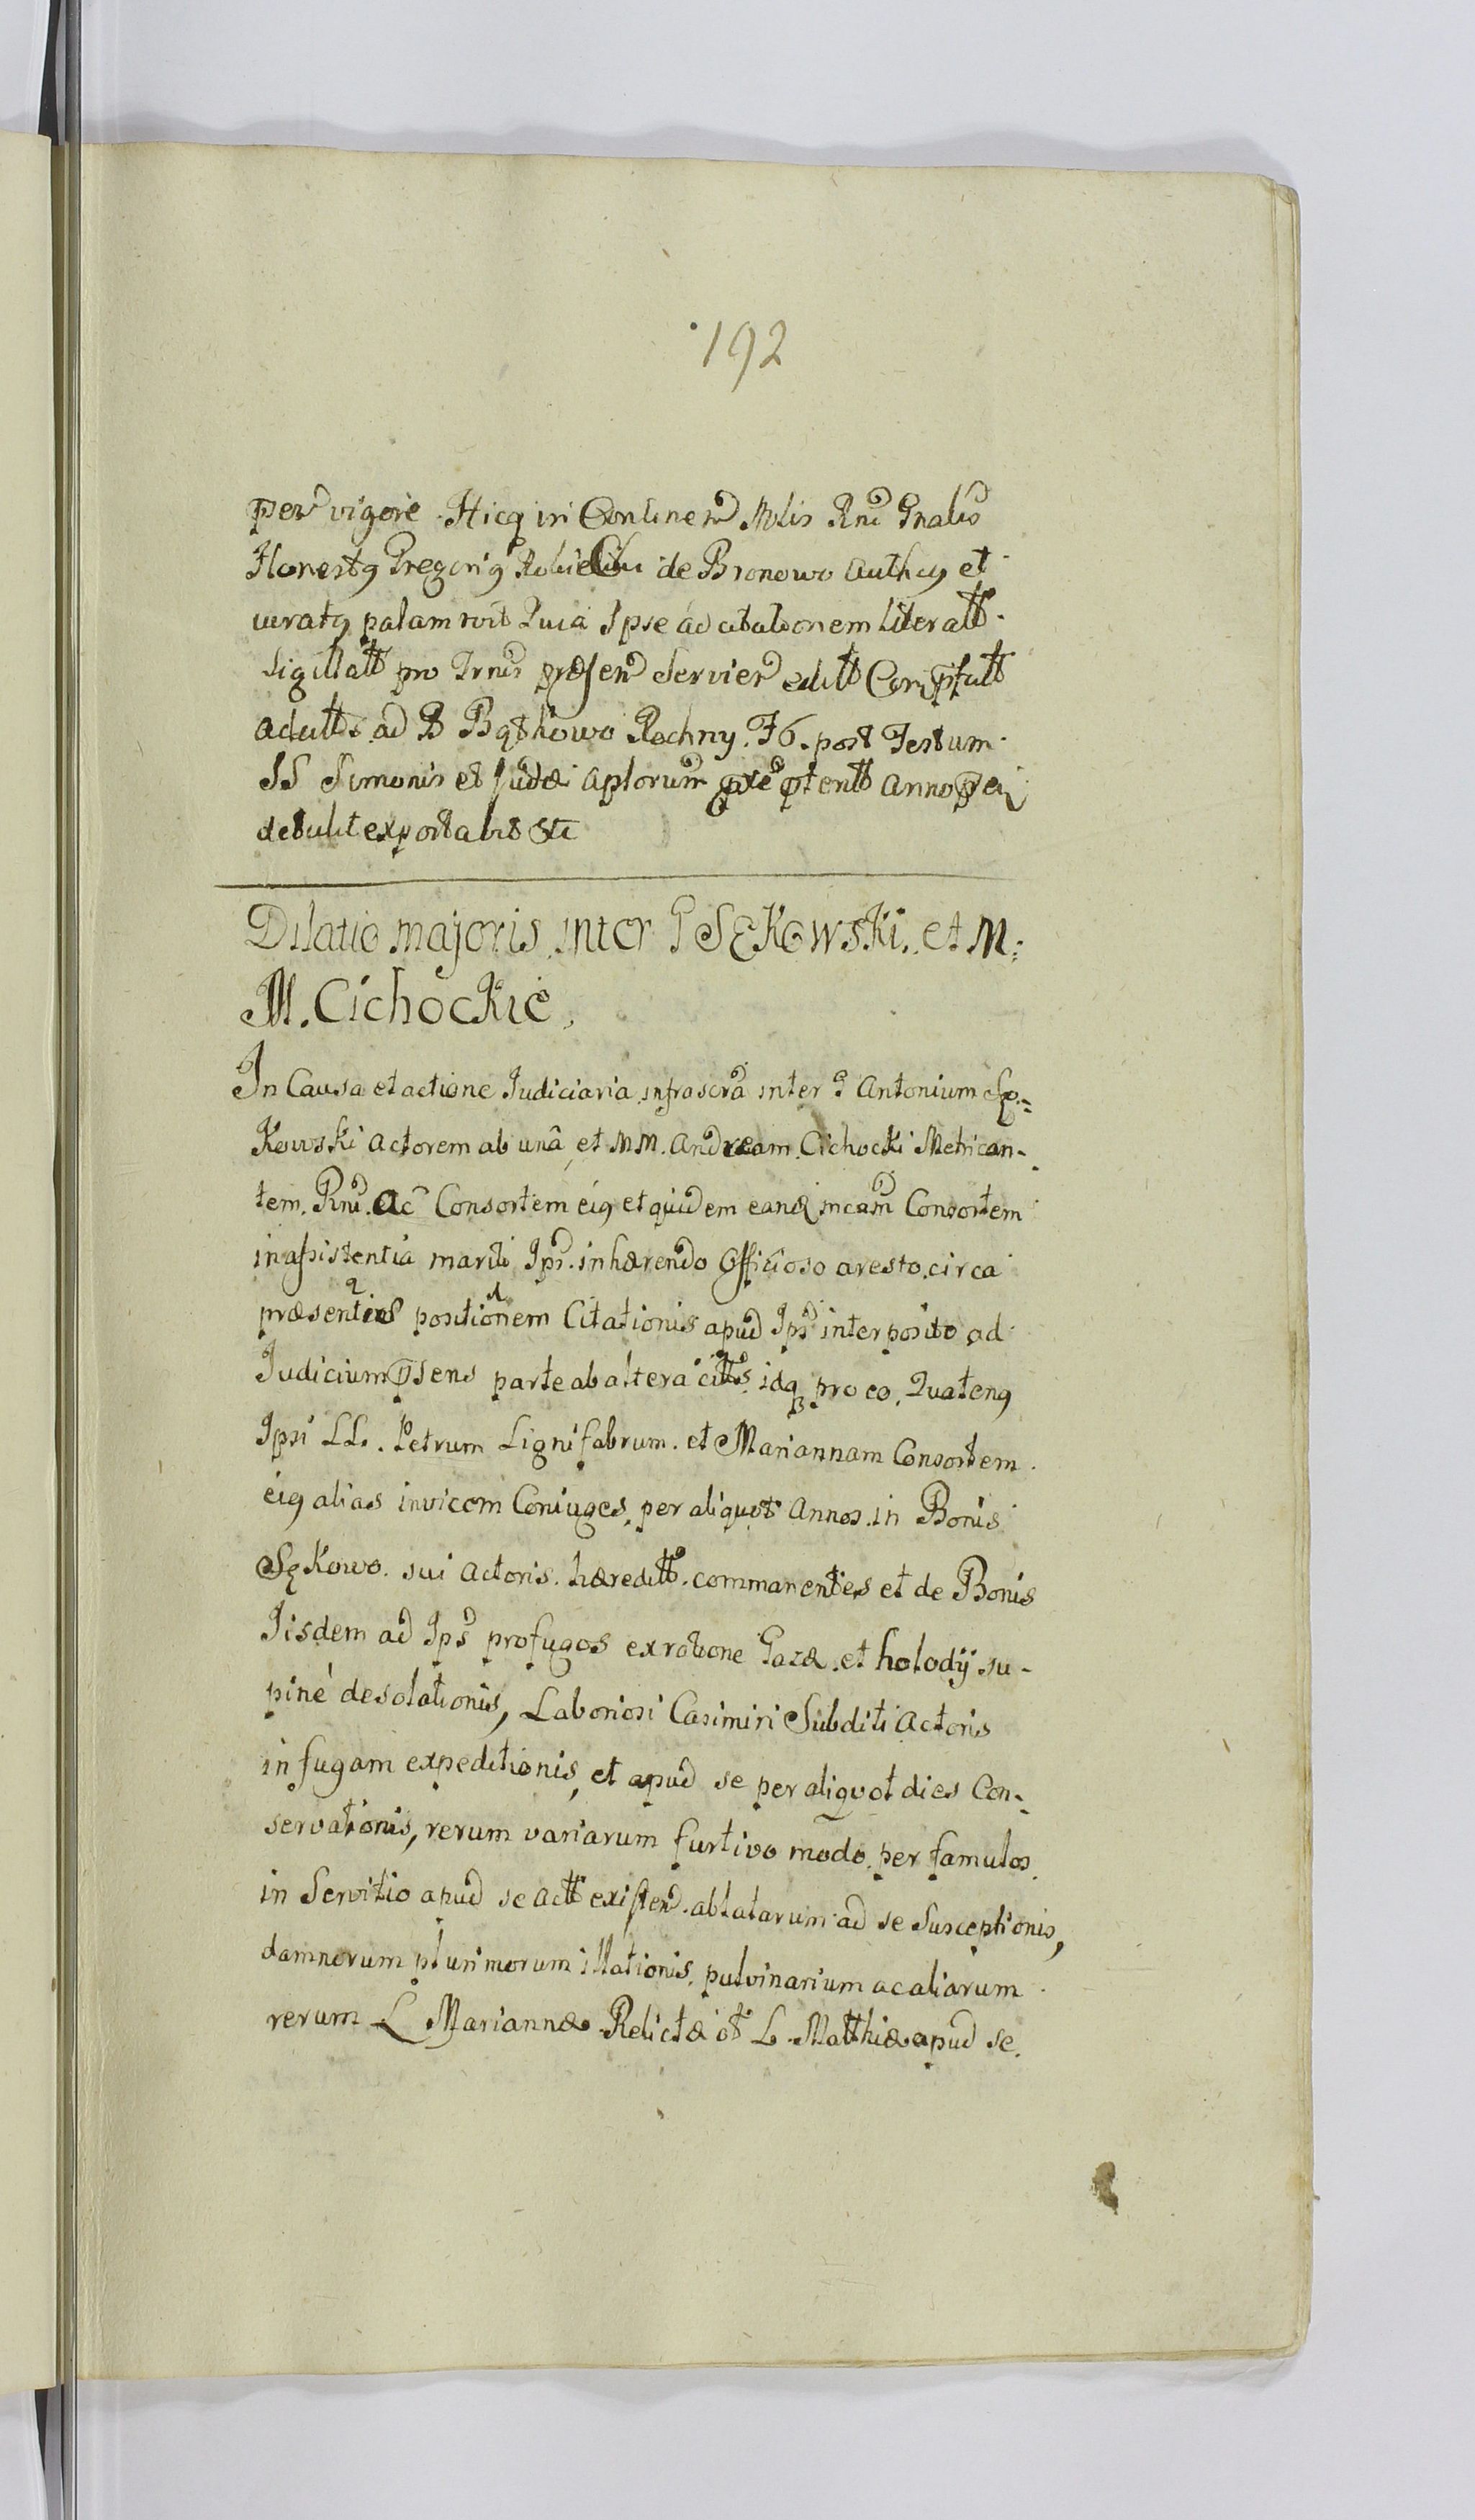 192
vigore Hicq in Mtis Rni Gnalis
Honestq Gregoriq de Bronowo Authcq et
iuratq palam Quia Ipse ad citationem Literatt
Sigillatt pro præsen Servien editt
ad B Bątkowo Rochny. F6. post Festum
SS Simonis et Judæ Aptorum Anno
detulit exportabit etc
Dilatio majoris inter G SęKowski. et M:
M. Cichockie,
In Causa et actione Judiciaria infrascra inter G Antonium Sę=
Kowski Actorem ab unâ, et MM. Andream Cichocki Metrican-
tem. Rni. Ac Consortem eiq et quidem eand mcam Consortem
in assistentia mariti Ips. inhærendo Officioso aresto. circa
præsentis positionem Citationis apud Ips interposito ad
Judicium psens parte ab altera citts. idq pro eo. Quatenq
Ipsi LL. Petrum Lignifabrum. et Mariannam Consortem
eiq alias invicem Coniuges. per aliquot Annos. in Bonis
SęKowo. sui Actoris. hæreditt. commanentes et de Bonis
Iisdem ad Ips profugos ex ratione Gazæ. et holodÿ su-
piné desolationis, Laboriosi Casimiri Subditi Actoris
in fugam expeditionis, et apud se per aliquot dies Con-
servationis, rerum variarum furtivo modo. per famulos
in Servitio apud se actt existen. ablatarum ad se Susceptionis,
damnorum plurimorum illationis. pulvinarium ac aliarum
rerum L Mariannæ. Relictæ ot L. Matthiæ apud se.